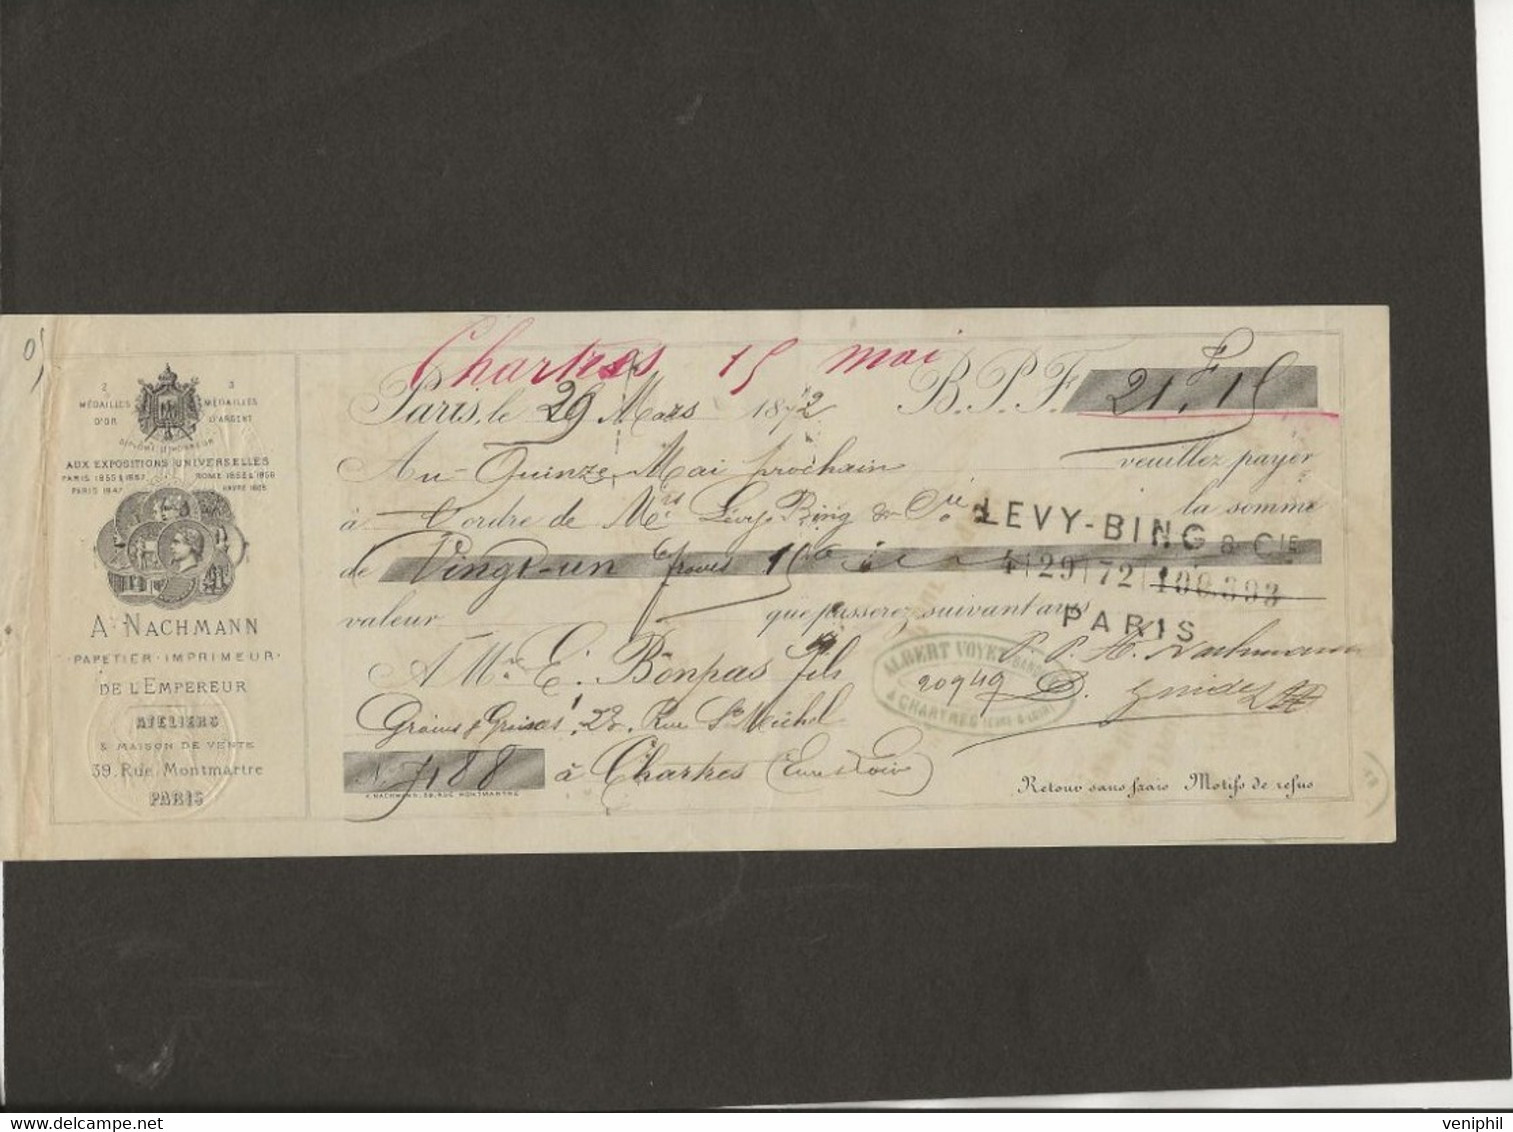 2
MÉDAILLES
D'OR
3
MÉDAILLES
D'ARGENT
DIPLÔME D'HONNEUR
AUX EXPOSITIONS UNIVERSELLES
PARIS 1855 & 1867
PARIS 1847
ROME 1855 & 1856
HAVRE 1868
A. NACHMANN
PAPETIER-IMPRIMEUR
DE L'EMPEREUR
ATELIERS
& MAISON DE VENTE
39, Rue Montmartre
PARIS
Chartres 15 mai
Paris, le 29 Mars 1872 B.P.F. 21F,15
Au Quinze Mai prochain veuillez payer
à L'ordre de Mrs Lévy Bing & Cie la somme
LEVY-BING & CIE
de Vingt-un francs 15c
4|29|72|100.393
PARIS
valeur que passerez suivant avis
A Mr E. Bonpas fils
ALBERT VOYET BANQ
A CHARTRES (EURE-&-LOIR)
20949
P. P. A. Nachmann
Grains & 23, Rue St Michel
No 7188 à Chartres (Eure & Loir)
A. NACHMANN, 39, RUE MONTMARTRE
Retour sans frais Motifs de refus
veniphil